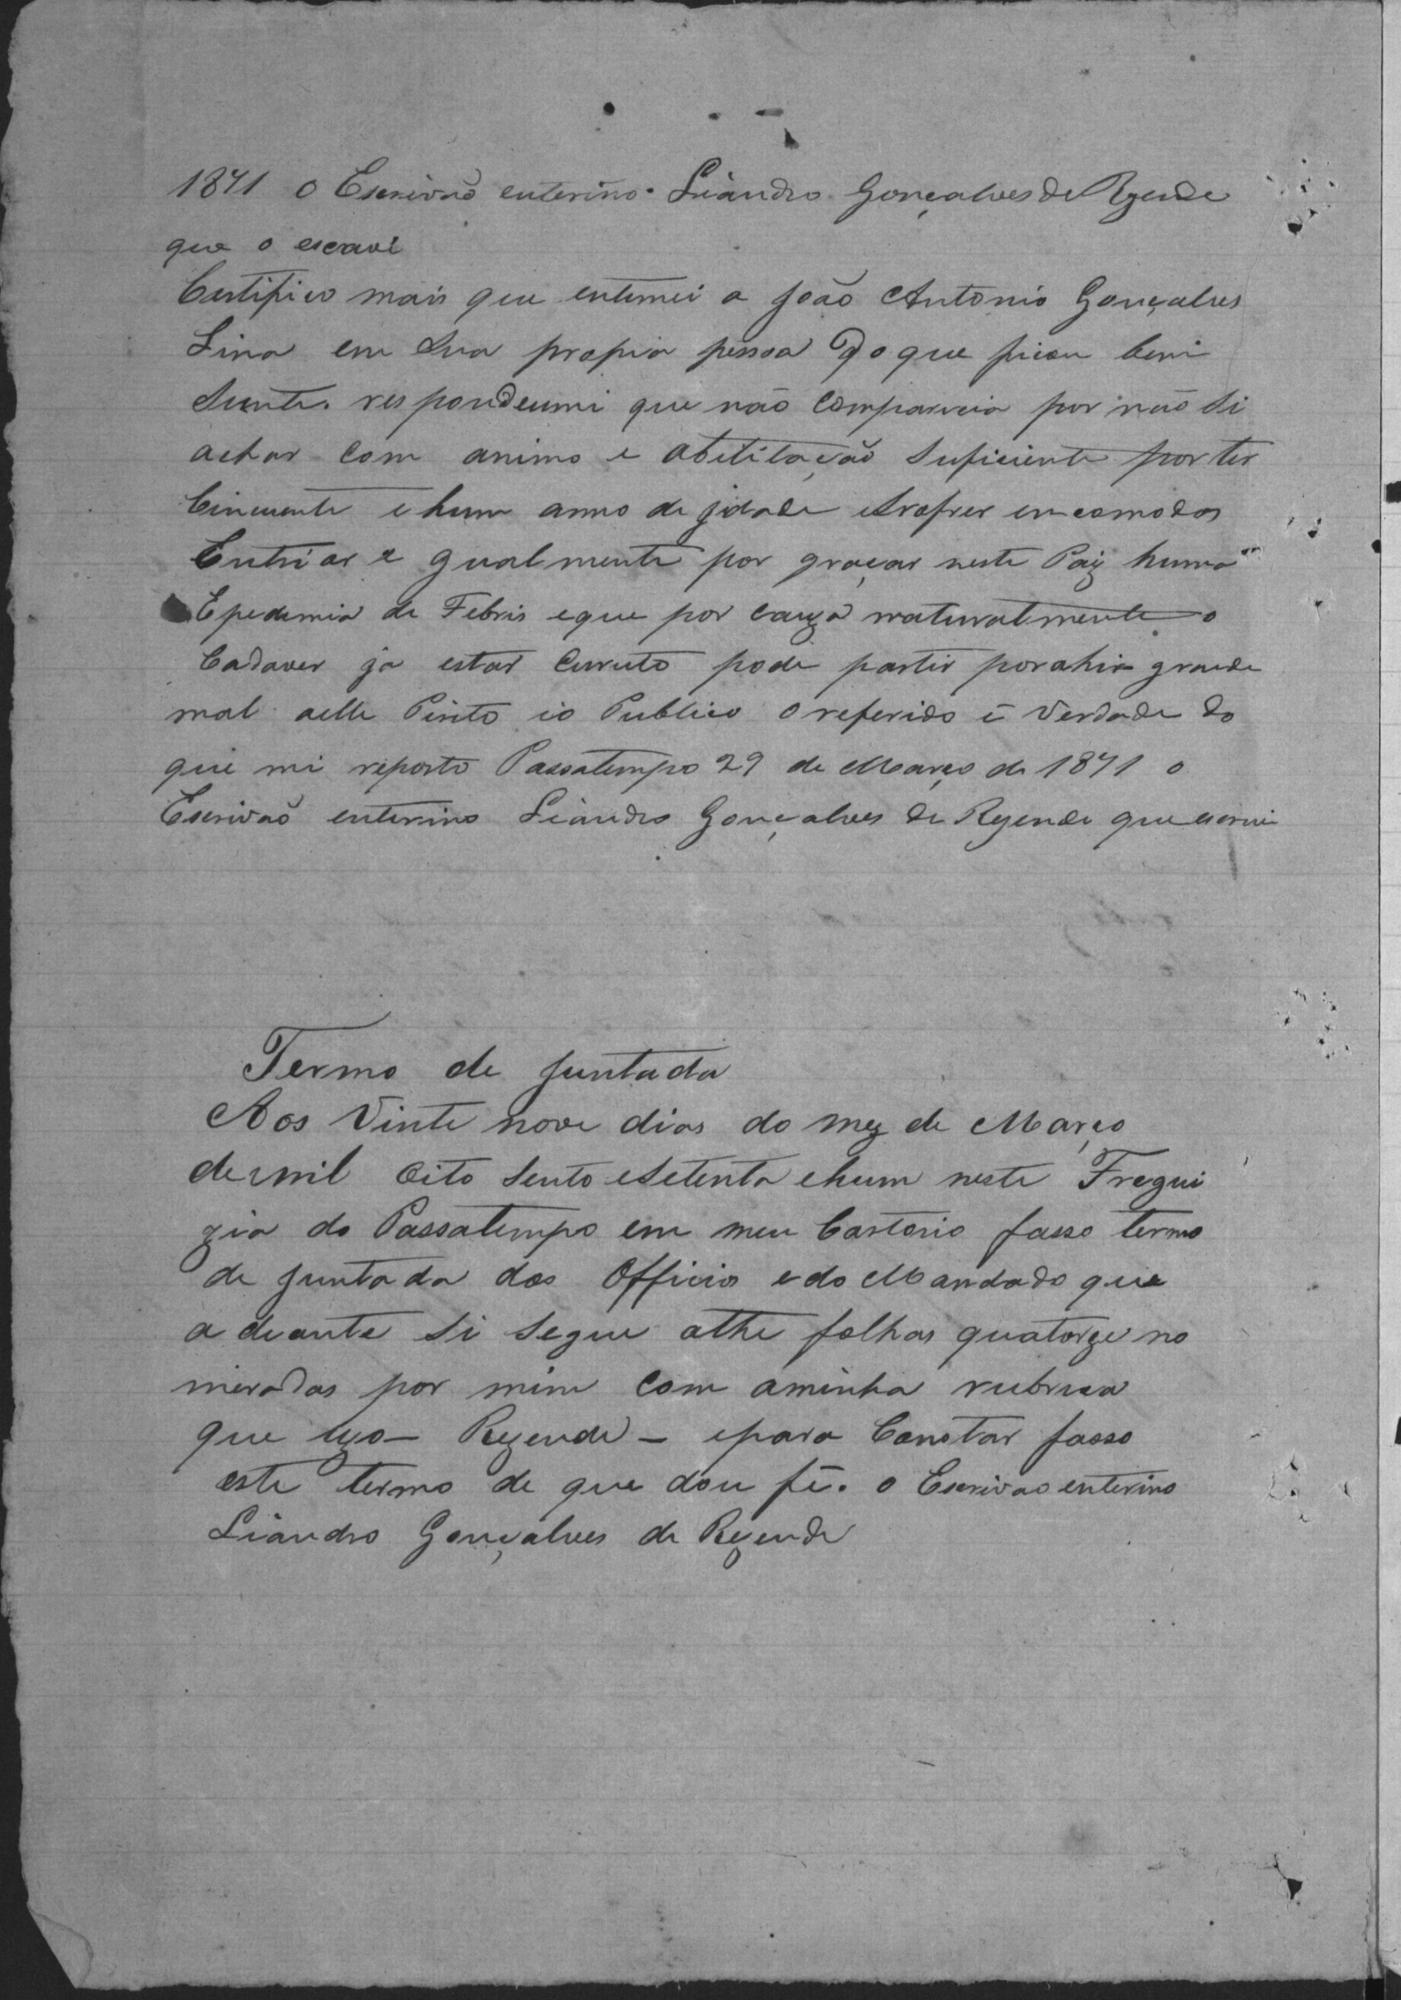 1871 o Escrivaõ enterino Liandro Gonçalves de Rezende
que o escrevi
Certifico mais que entemei a João Antonio Gonçalves
Lina em Sua propia pessoa do que ficou bem
Sente. respondeumi que não Comparecia por não Si
achar com animo e abelitação Suficiente por ter
Cincuenta e hum anno de jdade e encomodos
e gualmente por graçar neste Paiz huma
Epedemia de Febris e que por cauza naturalmente o
Cadaver ja estar Curruto pode partir por ahi grande
mal aelle Pirito eo Publico O referido é Verdade do
que mi reporto Passatempo 29 de Março de 1871 o
Escrivaõ enterino Liandro Gonçalves de Rezende que escrevi
Termo de juntada
Aos Vinte nove dias do mez de Março
de mil Oito Sento e Setenta e hum neste Fregui
zia do Passatempo em meu Cartorio fasso termo
de juntada dos Officio e do Mandado que
a deante Si Segue athe folhas quatorze no
meradas por mim Com aminha rubrica
que uzo – Rezende – epara Constar fasso
este termo de que dou fé. o Escrivao enterino
Liandro Gonçalves de Rezende